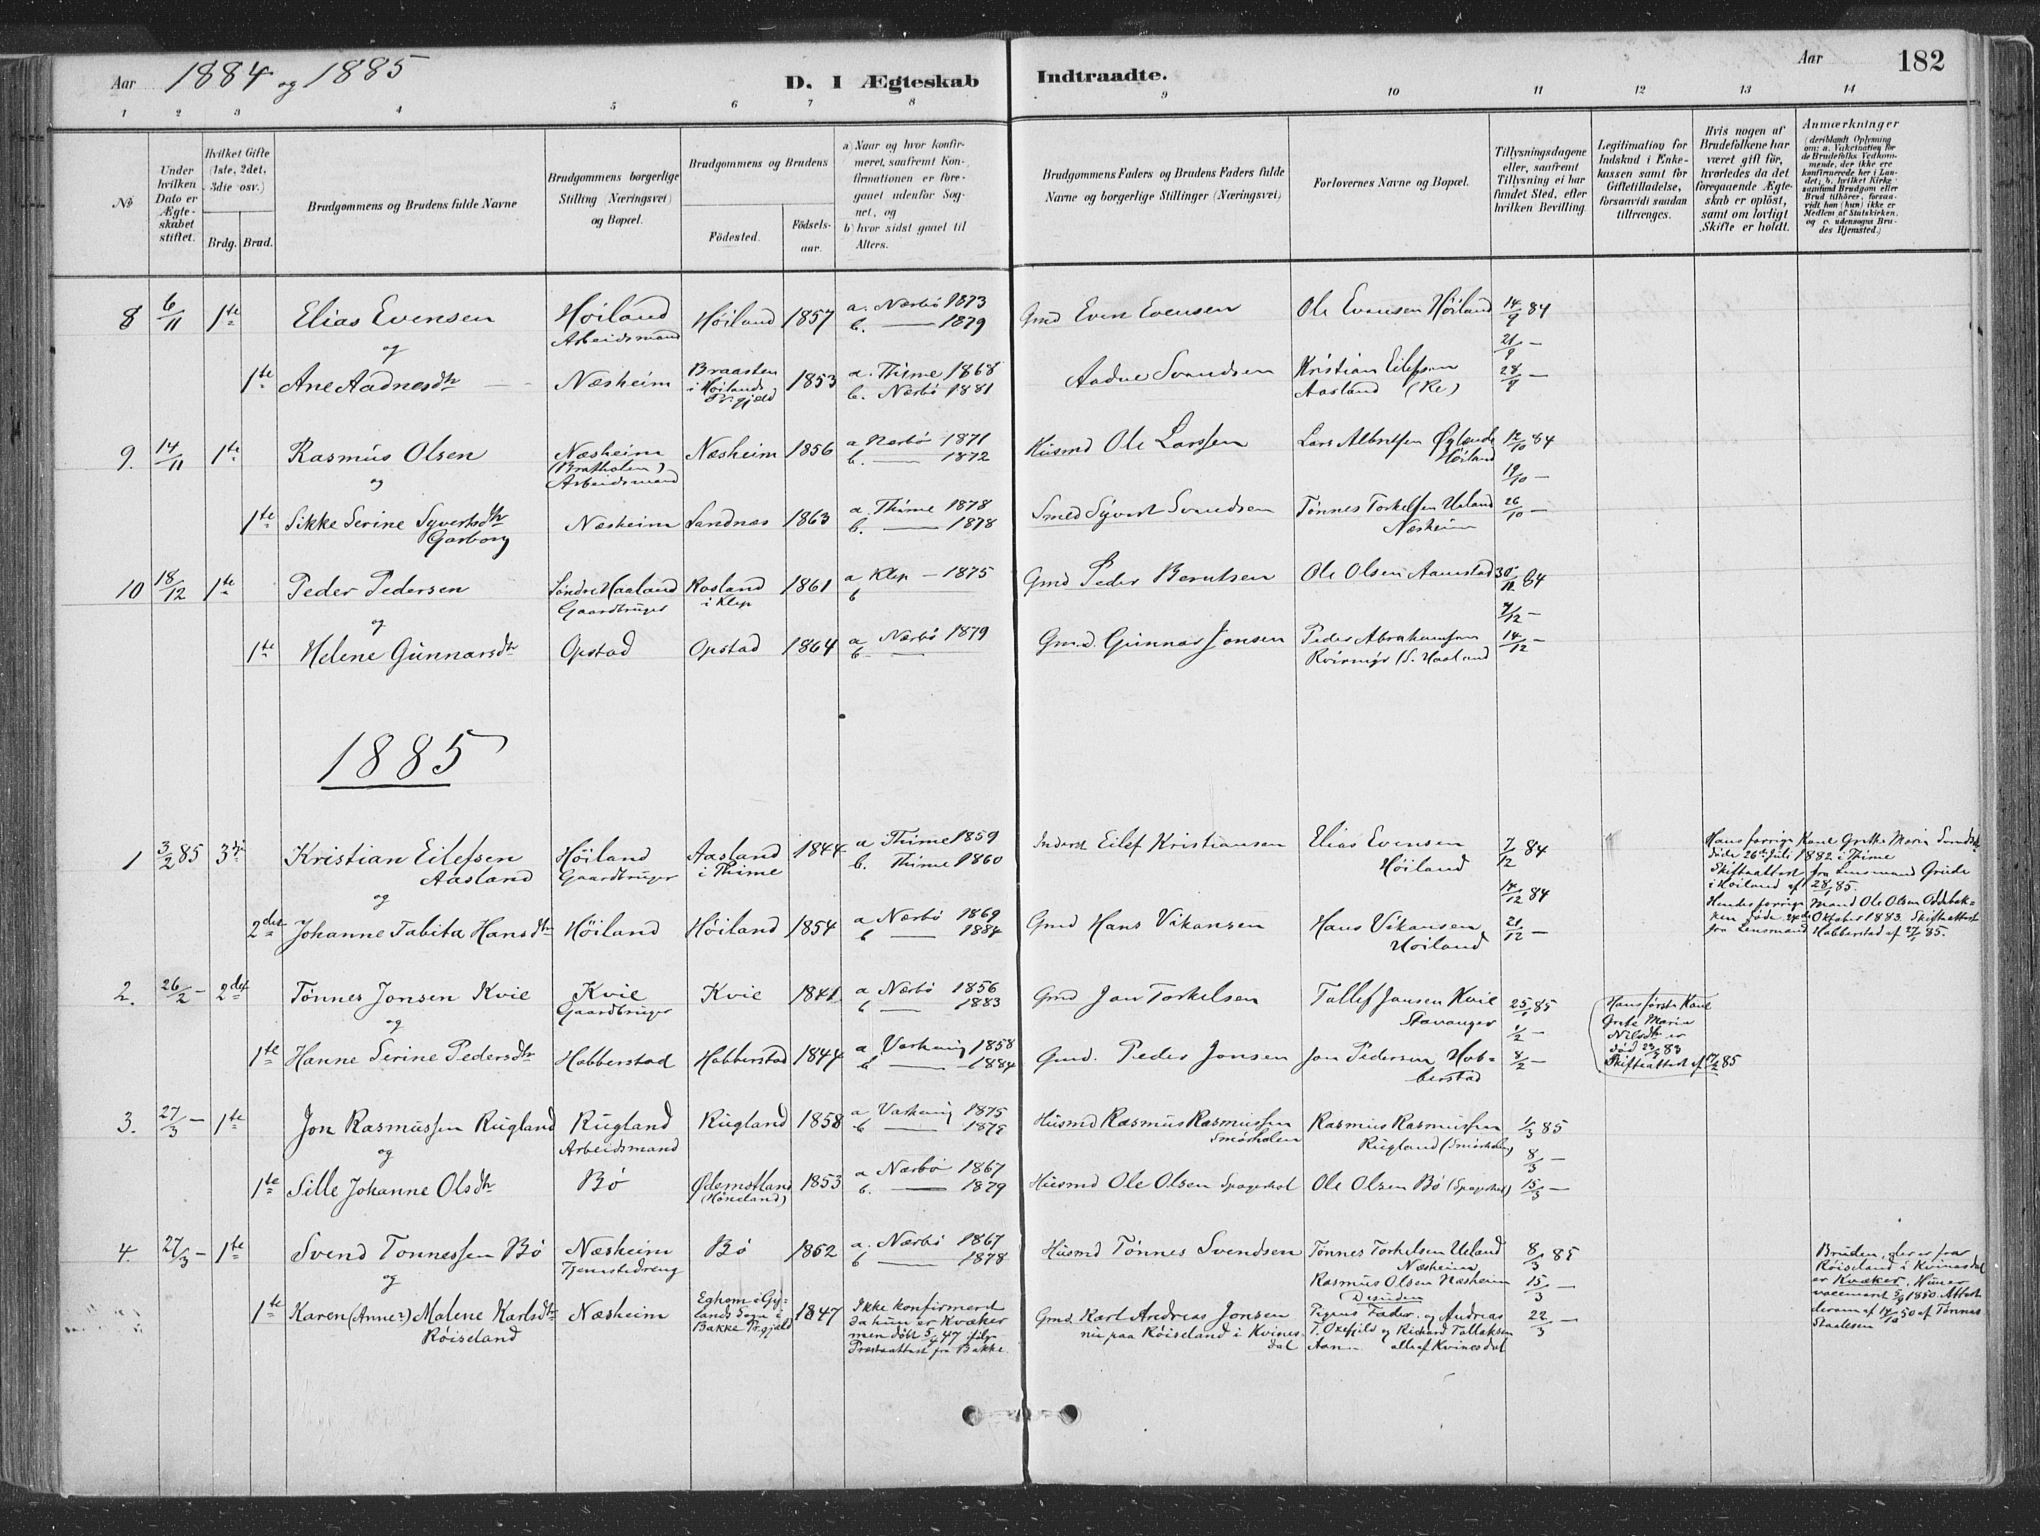 Aar 1884 og 1885
D. I Ægteskab Indtraadte.
Aar 182
1 2 3 4 5 6 7 8 9 10 11 12 13 14
No
Under hvilken Dato er Ægteskabet stiftet.
Hvilket Gifte (1ste, 2det, 3die osv.)
Brdg. Brud.
Brudgommens og Brudens fulde Navne
Brudgommens borgerlige Stilling (Næringsvei) og Bopæl.
Brudgommens og Brudens
Fødested.
Fødselsaar.
a) Naar og hvor konfirmeret, saafremt Konfirmationen er foregaaet udenfor Sognet, og
b) hvor sidst gaaet til Alters.
Brudgommens Faders og Brudens Faders fulde Navne og borgerlige Stillinger (Næringsvei)
Forlovernes Navne og Bopæl.
Tillysningsdagene eller, saafremt Tillysning ei har fundet Sted, efter hvilken Bevilling.
Legitimation for Indskud i Enkekassen samt for Giftetilladelse, forsaavidt saadan tiltrænges.
Hvis nogen af Brudefolkene har været gift før, hvorledes da det foregaaende Ægteskab er opløst, samt om lovligt Skifte er holdt.
Anmærkninger
(deriblandt Oplysning om: a. Vaksination for de Brudefolks Vedkommende, der ikke ere konfirmerede her i Landet; b. hvilket Kirkesamfund Brudgom eller Brud tilhører, forsaavidt han (hun) ikke er Medlem af Statskirken, og c. udensogns Brudes Hjemsted.)
8 6/11 1te Elias Evensen Høiland Arbeidsmand Høiland 1857 a. Nærbø 1873 b. — 1879 Gmd Even Evensen Ole Evensen Høiland 14/9 84
og 21/9 —
1te Ane Aadnesdtr — Næsheim Braasten i Høilands Pr.gjeld 1853 a. Thime 1868 b. Nærbø 1881 Aadne Svendsen Kristian Eilefsen Aasland (Re) 28/9 —
9. 14/11 1te Rasmus Olsen Næsheim (Brattholen) Arbeidsmand Næsheim 1856 a Nærbø 1871 b. — 1872 Husmd Ole Larssen Lars Albretsen Øglænde Høiland 12/10 84
og 19/10 —
1te Sikke Serine Syvertsdtr Garborg Næsheim Sandnæs 1863 a. Thime 1878 b. — 1878 Smed Syvert Svendsen Tønnes Torkelsen Ueland Næsheim 26/10 —
10 18/12 1te Peder Pedersen Søndre Haaland Gaardbruger Rosland i Klep 1861 a Klep — 1875 b — Gmd Peder Berntsen Ole Olsen Aanestad 30/11 84
og 7/12 —
1te Helene Gunnarsdtr Opstad Opstad 1864 a Nærbø 1879 b. — Gmd. Gunnar Jonsen Peder Abrahamsen (S. Haaland 14/12 —
1885
1 3/2 85 3die Kristian Eilefsen Aasland Høiland Gaardbruger Aasland i Thime 1844 a Thime 1859 b. Thime 1860 Inderst Eilef Kristiansen Elias Evensen Høiland 7/12 84
og 14/12 84
Hans forrige Kone Grethe Maria Svendsdtr
døde 26de Juli 1882 i Thime
Skifteattest fra Lensmand Grude
i Høiland af 28/1 85.
Hendes forrige Mand Ole Olsen Oddbek-
ken døde 24de Oktober 1883. Skifteattest
fra Lensmand Habberstad af 27/1 85.
2det Johanne Tabita Hansdtr Høiland Høiland 1854 a Nærbø 1869 b — 1884 Gmd Hans Vikansen Hans Vikansen Høiland 21/12 —
2. 26/2 — 2det Tønnes Jonsen Kvie Kvie Gaardbruger Kvie 1841 a Nærbø 1856 b — 1883 Gmd Jon Torkelsen Tollef Jonsen Kvie Stavanger 25/1 85
og 1/2 —
Hans første Kone
Grete Maria
Nilsdtr er
død 23/3 83
Skifteattest af 17/2 85
1te Hanne Serine Pedersdtr Habberstad Habberstad 1844 a Varhaug 1858 b — 1884 Gmd. Peder Jonsen Jon Pedersen Hab-berstad 8/2 —
3. 27/3 — 1te Jon Rasmussen Rugland Rugland Arbeidsmand Rugland 1858 a Varhaug 1875 b — 1878 Husmd Rasmus Rasmussen Smørholen Rasmus Rasmussen Rugland (Smørholen) 1/3 85
og 8/3 —
1te Sille Johanne Olsdtr Bø Ødemotland (Høneland) 1853 a Nærbø 1867 b. — 1879 Husmd Ole Olsen Ole Olsen Bø 15/3 —
4. 27/3 — 1te Svend Tønnessen Bø Næsheim Tjenestedreng Bø 1852 a. Nærbø 1867 b — 1878 Husmd Tønnes Svendsen Tønnes Torkelsen Ueland Næsheim 8/3 85
og Rasmus Olsen Næsheim 15/3 —
Desuden
1te Karen (Anne?) Malene Karlsdtr Røiseland Næsheim Eghom i Gy-lands Sogn i Bakke Pr.gjeld 1847 Ikke konfirmerd da hun er Kvæker men døbt 5/4 47 ifølge Præsteattest fra Bakke. Gmd. Karl Andreas Jonsen nu paa Røiseland i Kvines-dal Pigens Fader, og Andreas T. Oxefjeld og Richard Tollaksen alle af Kvinesdal 22/3 —
Bruden, der er fra
Røiseland i Kvinesdal
er Kvæker. Hun er
vaccineret 5/9 1850. Attest
derom af 14/10 50 af Tønnes
Staalesen